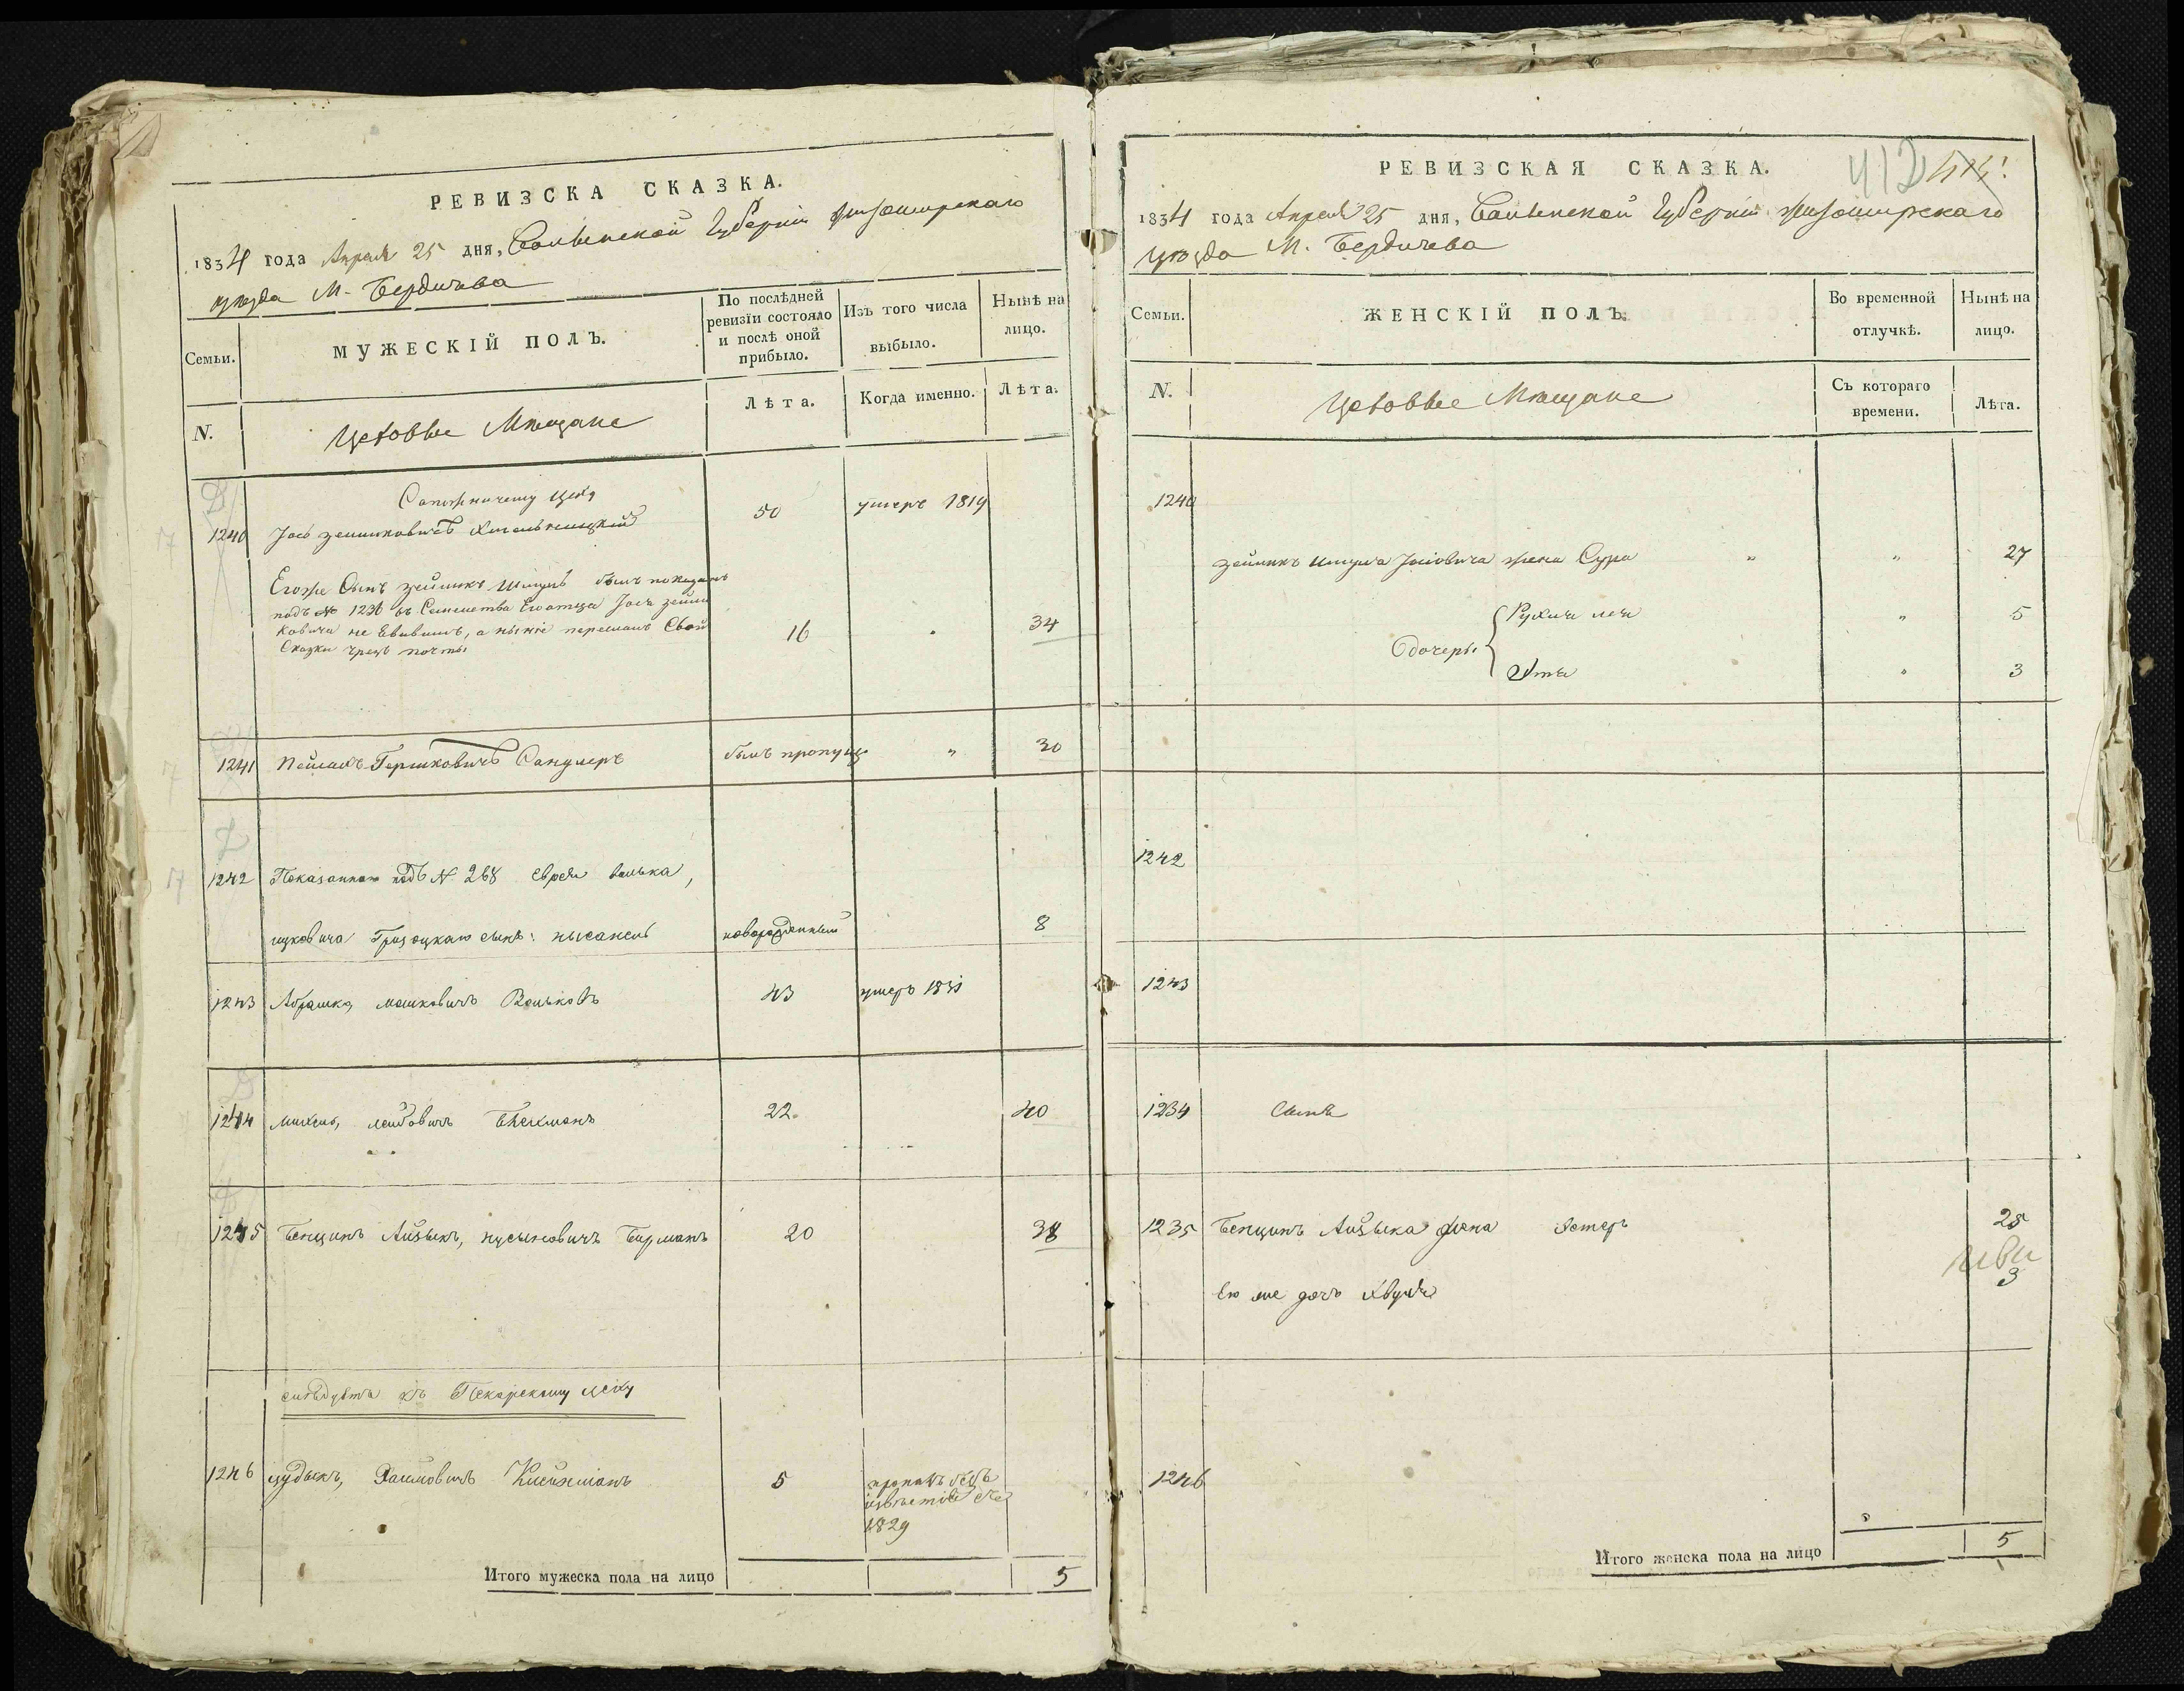 РЕВИЗСКА СКАЗКА.
1834 года Апреля 25 дня, Волынской Губерніи Житомирскаго
уезда М. Бердичева
Семьи.
МУЖЕСКІЙ ПОЛЪ.
По послѣдней ревизіи состояло и послѣ оной прибыло.
Изъ того числа выбыло.
Нынѣ на лицо.
N.
Цеховые Мещане
Лѣта.
Когда именно.
Лѣта.
Сапожничему цеху
1240 Іось Зейликовичъ Хмельницкий 50 умеръ 1819
Егоже Сынъ Зейликъ былъ показанъ
подъ № 1236 въ Семействе Его отца Іося Зейли
ковича не , а ныне Свои
Сказки чрезъ почты 16 34
1241 Гершковичъ был пропущ „ 30
1242 Показаннаго подъ N 268 еврея Волька,
ицковича сынъ: нысанель новорожденный 8
1243 Абрашка, мошковичъ Вольковъ 43 умеръ 1831
1244 Михель, лейбовичъ 22 40
1245 Бенционъ Айзыкъ, нусыновичъ Бирманъ 20 38
следуютъ къ Пекарскому цеху
1246 Хаимовичъ Клейнманъ 5 пропалъ безъ
извѣстія съ
1829
Итого мужеска пола на лицо 5
РЕВИЗСКАЯ СКАЗКА. 412
1834 года Апреля 25 дня, Волынской Губерніи Житомирскаго
уезда М. Бердичева
Семьи.
ЖЕНСКІЙ ПОЛЪ.
Во временной отлучкѣ.
Нынѣ на лицо.
N.
Цеховые Мещане
Съ котораго времени.
Лѣта.
1240
Зейликъ Іосіовича жена Сура „ „ 27
Рухля лея „ 5
дочеры
Этя „ 3
1242
1243
1234
1235 Бенционъ Айзыка жена Эстеръ 25
Ею же дочь 3
1246
Итого женска пола на лицо 5